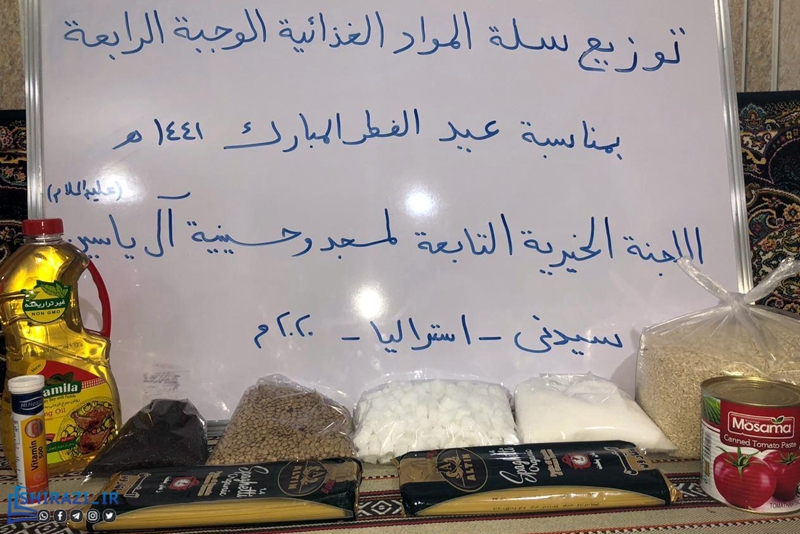 توزيع سلة المواد الغذائية الوجبة الرابعة
بمناسبة عيد الفطر المبارك ١٤٤١ هـ
(عليهم السلام)
اللجنة الخيرية التابعة لمسجد وحسينية آل ياسين
سيدني - استراليا - ٢٠٢٠ م
غیر تراریخته
NON GMO
amila
ng Oil
Vitamin
Spaghetti
Spaghetti
Mosama
Canned Tomato Paste
TOMATO
SHIRAZI.IR